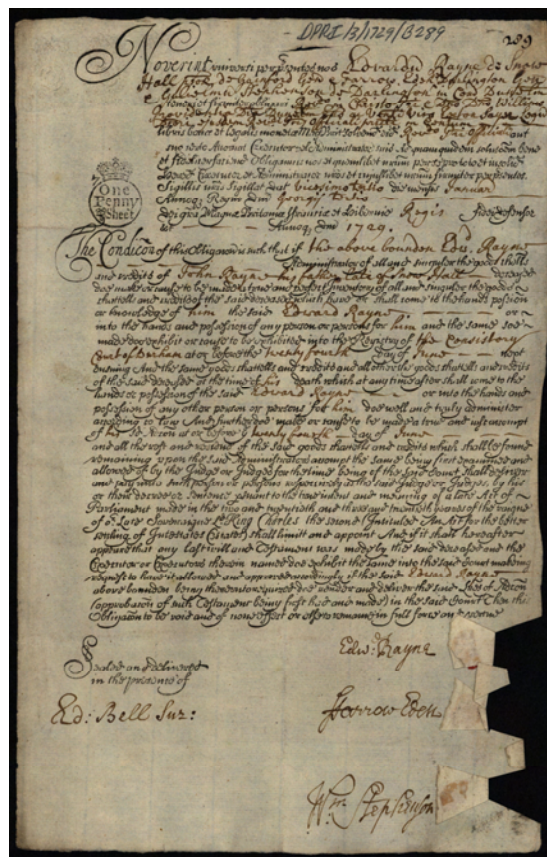 DPRI/3/1729/B289
289
Noverint universi per presentes nos Edwardū Rayne de Snow
Hall de Gainford Gen Farrow Eden Darlington Gen
Gulielmū Stephenson de Darlington in Com Dunelm
teneri et firmiter
Sigillis nris Sigillat Dat vicesimo die mensis Januar
Annoq Regni Dni Georgij
dei gra Magnæ Britaniæ Franciæ et Hiberniæ Regis fidei defensor
Annoq Dni 1729.
One
Penny
Sheet
The Condicōn of this Obligation is such that if the above bounden Edw. Rayne
Administrator of all and singular the goods chattells
and credits of John Rayne his father late of Snow Hall deceased
doe make or cause to be made a true and perfect Inventory of all and singular the goods
chattells and credits of the said deceased which have or shall come to the hands possession
or knowledge of him the said Edward Rayne or
into the hands and possession of any person or persons for him and the same soe
made doe exhibit or cause to be exhibited into the Registry of the Consistory
Court of Durham at or before the twenty fourth day of June next
ensuing And the same goods chattells and credits and all other the goods chattells and credits
of the said deceased at the time of his death which at any time after shall come to the
hands or possession of the said Edward Rayne or into the hands and
possession of any other person or persons for him doe well and truly administer
according to law And further doe make or cause to be made a true and just accompt
of his sd Accōn at or before ye twenty fourth day of June
and all the rest and residue of the said goods chattells and credits which shall be found
remaining upon the said Administrators accompt the same being first examined and
allowed of by the Judge or Judges for the time being of the said Court shall deliver
and pay unto such person or persons respectively as the said Judge or Judges by his
or their decree or sentence psuant to the true intent and meaning of a late Act of
Parliament made in the two and twentieth and three and twentieth yeares of the raigne
of or late Soveraigne Ld King Charles the second (Intituled An Act for the better
setling of Intestates Estates) shall limitt and appoint And if it shall hereafter
appeare that any last will and Testament was made by the said deceased and the
Executor or Executors therein named doe exhibit the same into the said Court making
request to have it allowed and approved accordingly if the said Edward Rayne
above bounden being thereunto required doe render and deliver the said Lres of Accōn
(approbacōn of such Testament being first had and made) in the said Court Then this
Obligacōn to be void and of none effect or else to remaine in full force and vertue
Sealed and delivered
in the presence of
Ed: Bell Sur:
Edw: Rayne
Farrow Eden
Wm Stephenson